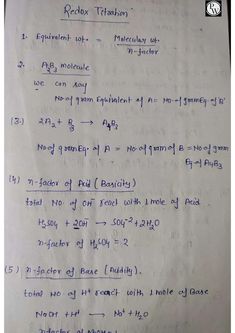 Redox Titration
1. Equivalent wt. = Molecular wt.
n-factor
2. A2B3 molecule
we can say
No of gram Equivalent of A = No. of gram Eq. of B
(3.) 2A2 + B3 → A4B3
No of gram Eq. of A = No of gram of B = No of gram
Eq of A4B3
(4) n-factor of Acid (Basicity)
total No of OH⁻ react with 1 mole of Acid
H2SO4 + 2OH⁻ → SO4⁻² + 2H2O
n-factor of H2SO4 = 2
(5) n-factor of Base (Acidity).
total No of H⁺ react with 1 mole of Base
NaOH + H⁺ → Na⁺ + H2O
n-factor of NaOH = 1